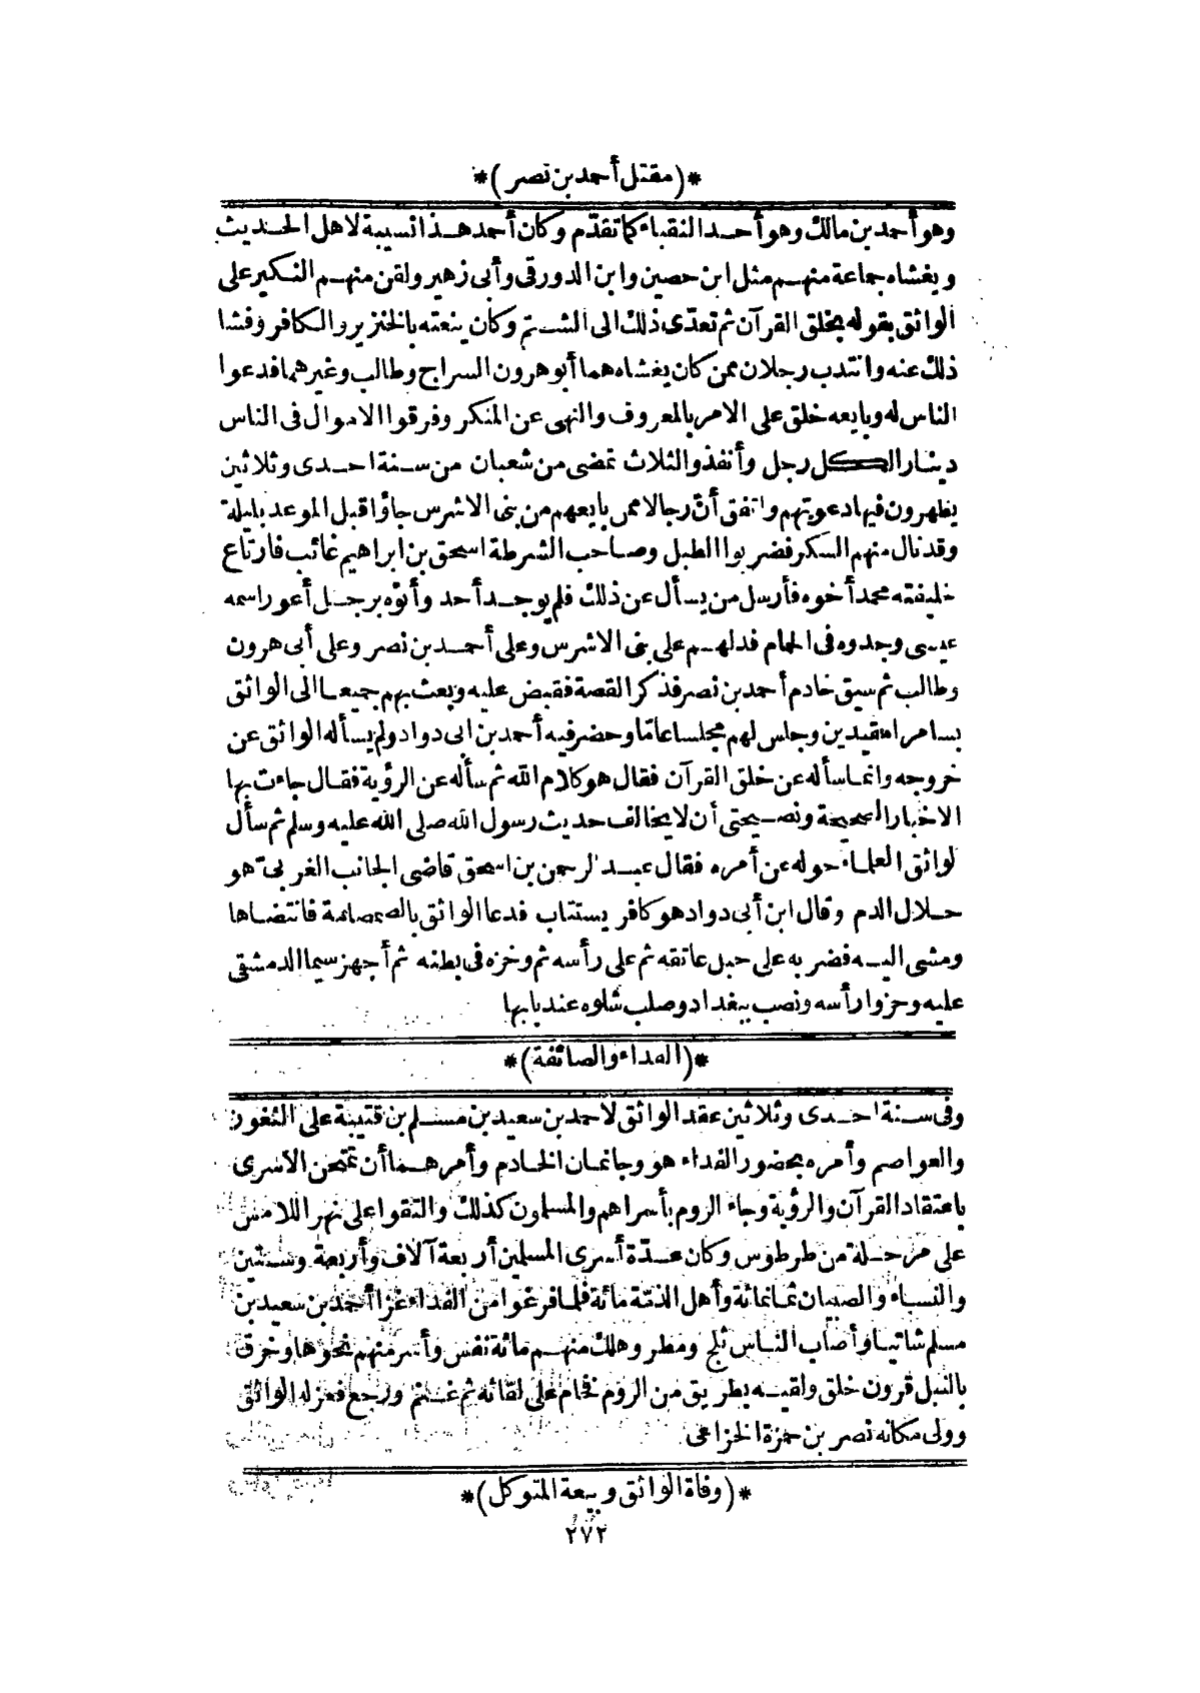 *(مقتل أحمد بن نصر)*
وهو أحمد بن مالك وهو أحد النقباء كما تقدّم وكان أحمد هذا نسيبة لاهل الحديث
ويغشاه جماعة منهم مثل ابن حصين وابن الدورقى وأبى زهير ولقن منهم النكير على
الواثق بقوله بخلق القرآن ثم تعدّى ذلك الى الشتم وكان ينعته بالخنزير والكافر وفشا
ذلك عنه وانتدب رجلان ممن كان يغشاه هما أبو هرون السراج وطالب وغيرهما فدعوا
الناس له وبايعه خلق على الامر بالمعروف والنهى عن المنكر وفرقوا الاموال فى الناس
دينار الكل رجل وأنفذوا لثلاث تمضى من شعبان من سنة احدى وثلاثين
يظهرون فيها دعوتهم واتفق أنّ رجالا ممن بايعهم من بنى الاشرس جاؤا قبل الموعد بليلة
وقد نال منهم السكر فضربوا الطبل وصاحب الشرطة اسحق بن ابراهيم غائب فارتاع
خليفته محمد أخوه فأرسل من يسأل عن ذلك فلم يوجد أحد وأتوه برجل أعور اسمه
عيسى وجدوه فى الحمام فدلهم على بنى الاشرس وعلى أحمد بن نصر وعلى أبى هرون
وطالب ثم سيق خادم أحمد بن نصر فذكر القصة فقبض عليه وبعث بهم جميعا الى الواثق
بسامرا مقيدين وجلس لهم مجلسا عامّا وحضر فيه أحمد بن ابى دواد ولم يسأله الواثق عن
خروجه وانما سأله عن خلق القرآن فقال هو كلام الله ثم سأله عن الرؤية فقال جاءت بها
الاخبار الصحيحة ونصيحتى أن لا يخالف حديث رسول الله صلى الله عليه وسلم ثم سأل
لواثق العلماء حوله عن أمره فقال عبد الرحمن بن اسحق قاضى الجانب الغربىّ هو
حلال الدم وقال ابن أبى دواد هو كافر يستتاب فدعا الواثق بالصمصامة فانتضاها
ومشى اليه فضربه على حبل عاتقه ثم على رأسه ثم وخزه فى بطنه ثم أجهز سيما الدمشقى
عليه وحزوا رأسه ونصب ببغداد وصلب شلوه عند بابها
*(الفداء والصائفة)*
وفى سنة احدى وثلاثين عقد الواثق لاحمد بن سعيد بن مسلم بن قتيبة على الثغور
والعواصم وأمره بحضور الفداء هو وجانمان الخادم وأمرهما أن تمتحن الاسرى
باعتقاد القرآن والرؤية وجاء الروم بأسراهم والمسلمون كذلك والتقوا على نهر اللامس
على مرحلة من طرطوس وكان عدّة أسرى المسلمين أربعة آلاف وأربعة وستين
والنساء والصبيان ثمانمائة وأهل الذمّة مائة فلما فرغوا من الفداء غزا أحمد بن سعيد بن
مسلم شاتيا وأصاب الناس ثلج ومطر وهلك منهم مائة نفس وأسر منهم نحوها وخرق
بالنبل قرون خلق ولقيه بطريق من الروم فخام على لقائه ثم غنم ورجع فعزله الواثق
وولى مكانه نصر بن حمزة الخزاعى
*(وفاة الواثق وبيعة المتوكل)*
٢٧٢